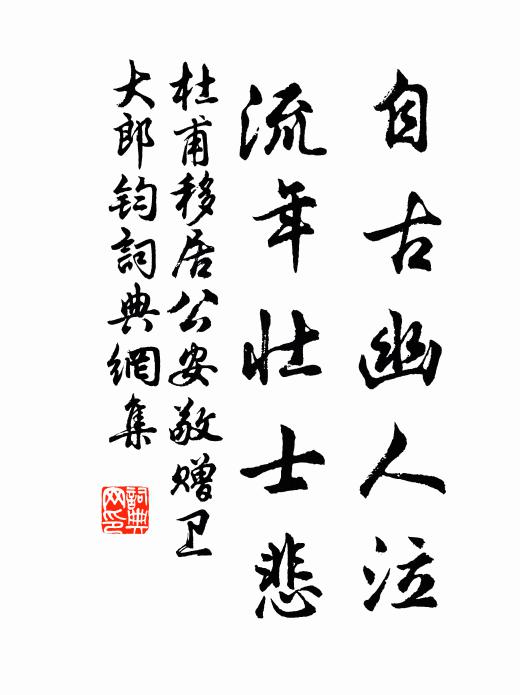 自古幽人泣
流年壮士悲
杜甫移居公安敬赠卫
大郎钧詞典網集
詞典
网印